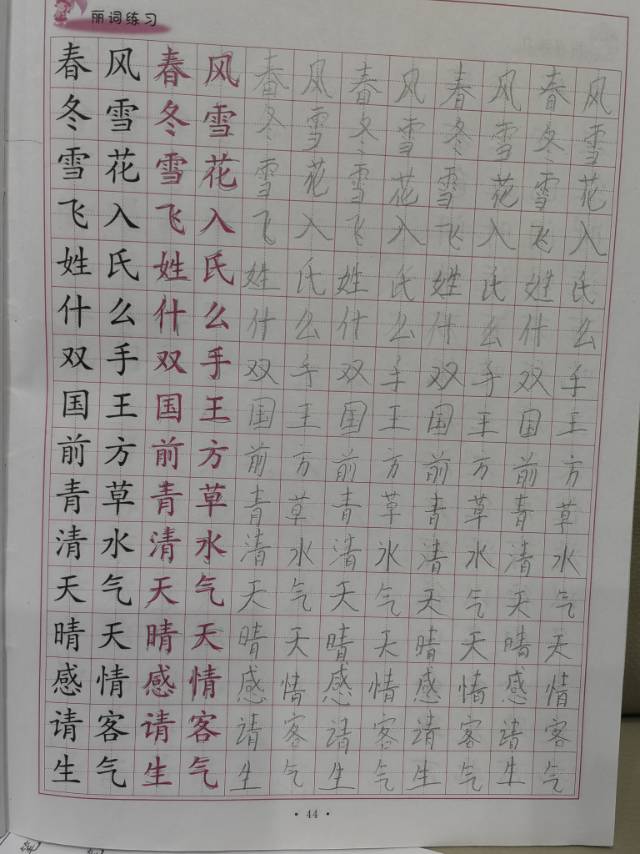 丽词练习
春风春风春风春风春风春风
冬雪冬雪冬雪冬雪冬雪冬雪
雪花雪花雪花雪花雪花雪花
飞入飞入飞入飞入飞入飞入
姓氏姓氏姓氏姓氏姓氏姓氏
什么什么什么什么什么什么
双手双手双手双手双手双手
国王国王国王国王国王国王
前方前方前方前方前方前方
青草青草青草青草青草青草
清水清水清水清水清水清水
天气天气天气天气天气天气
晴天晴天晴天晴天晴天晴天
感情感情感情感情感情感情
请客请客请客请客请客请客
生气生气生气生气生气生气
• 44 •